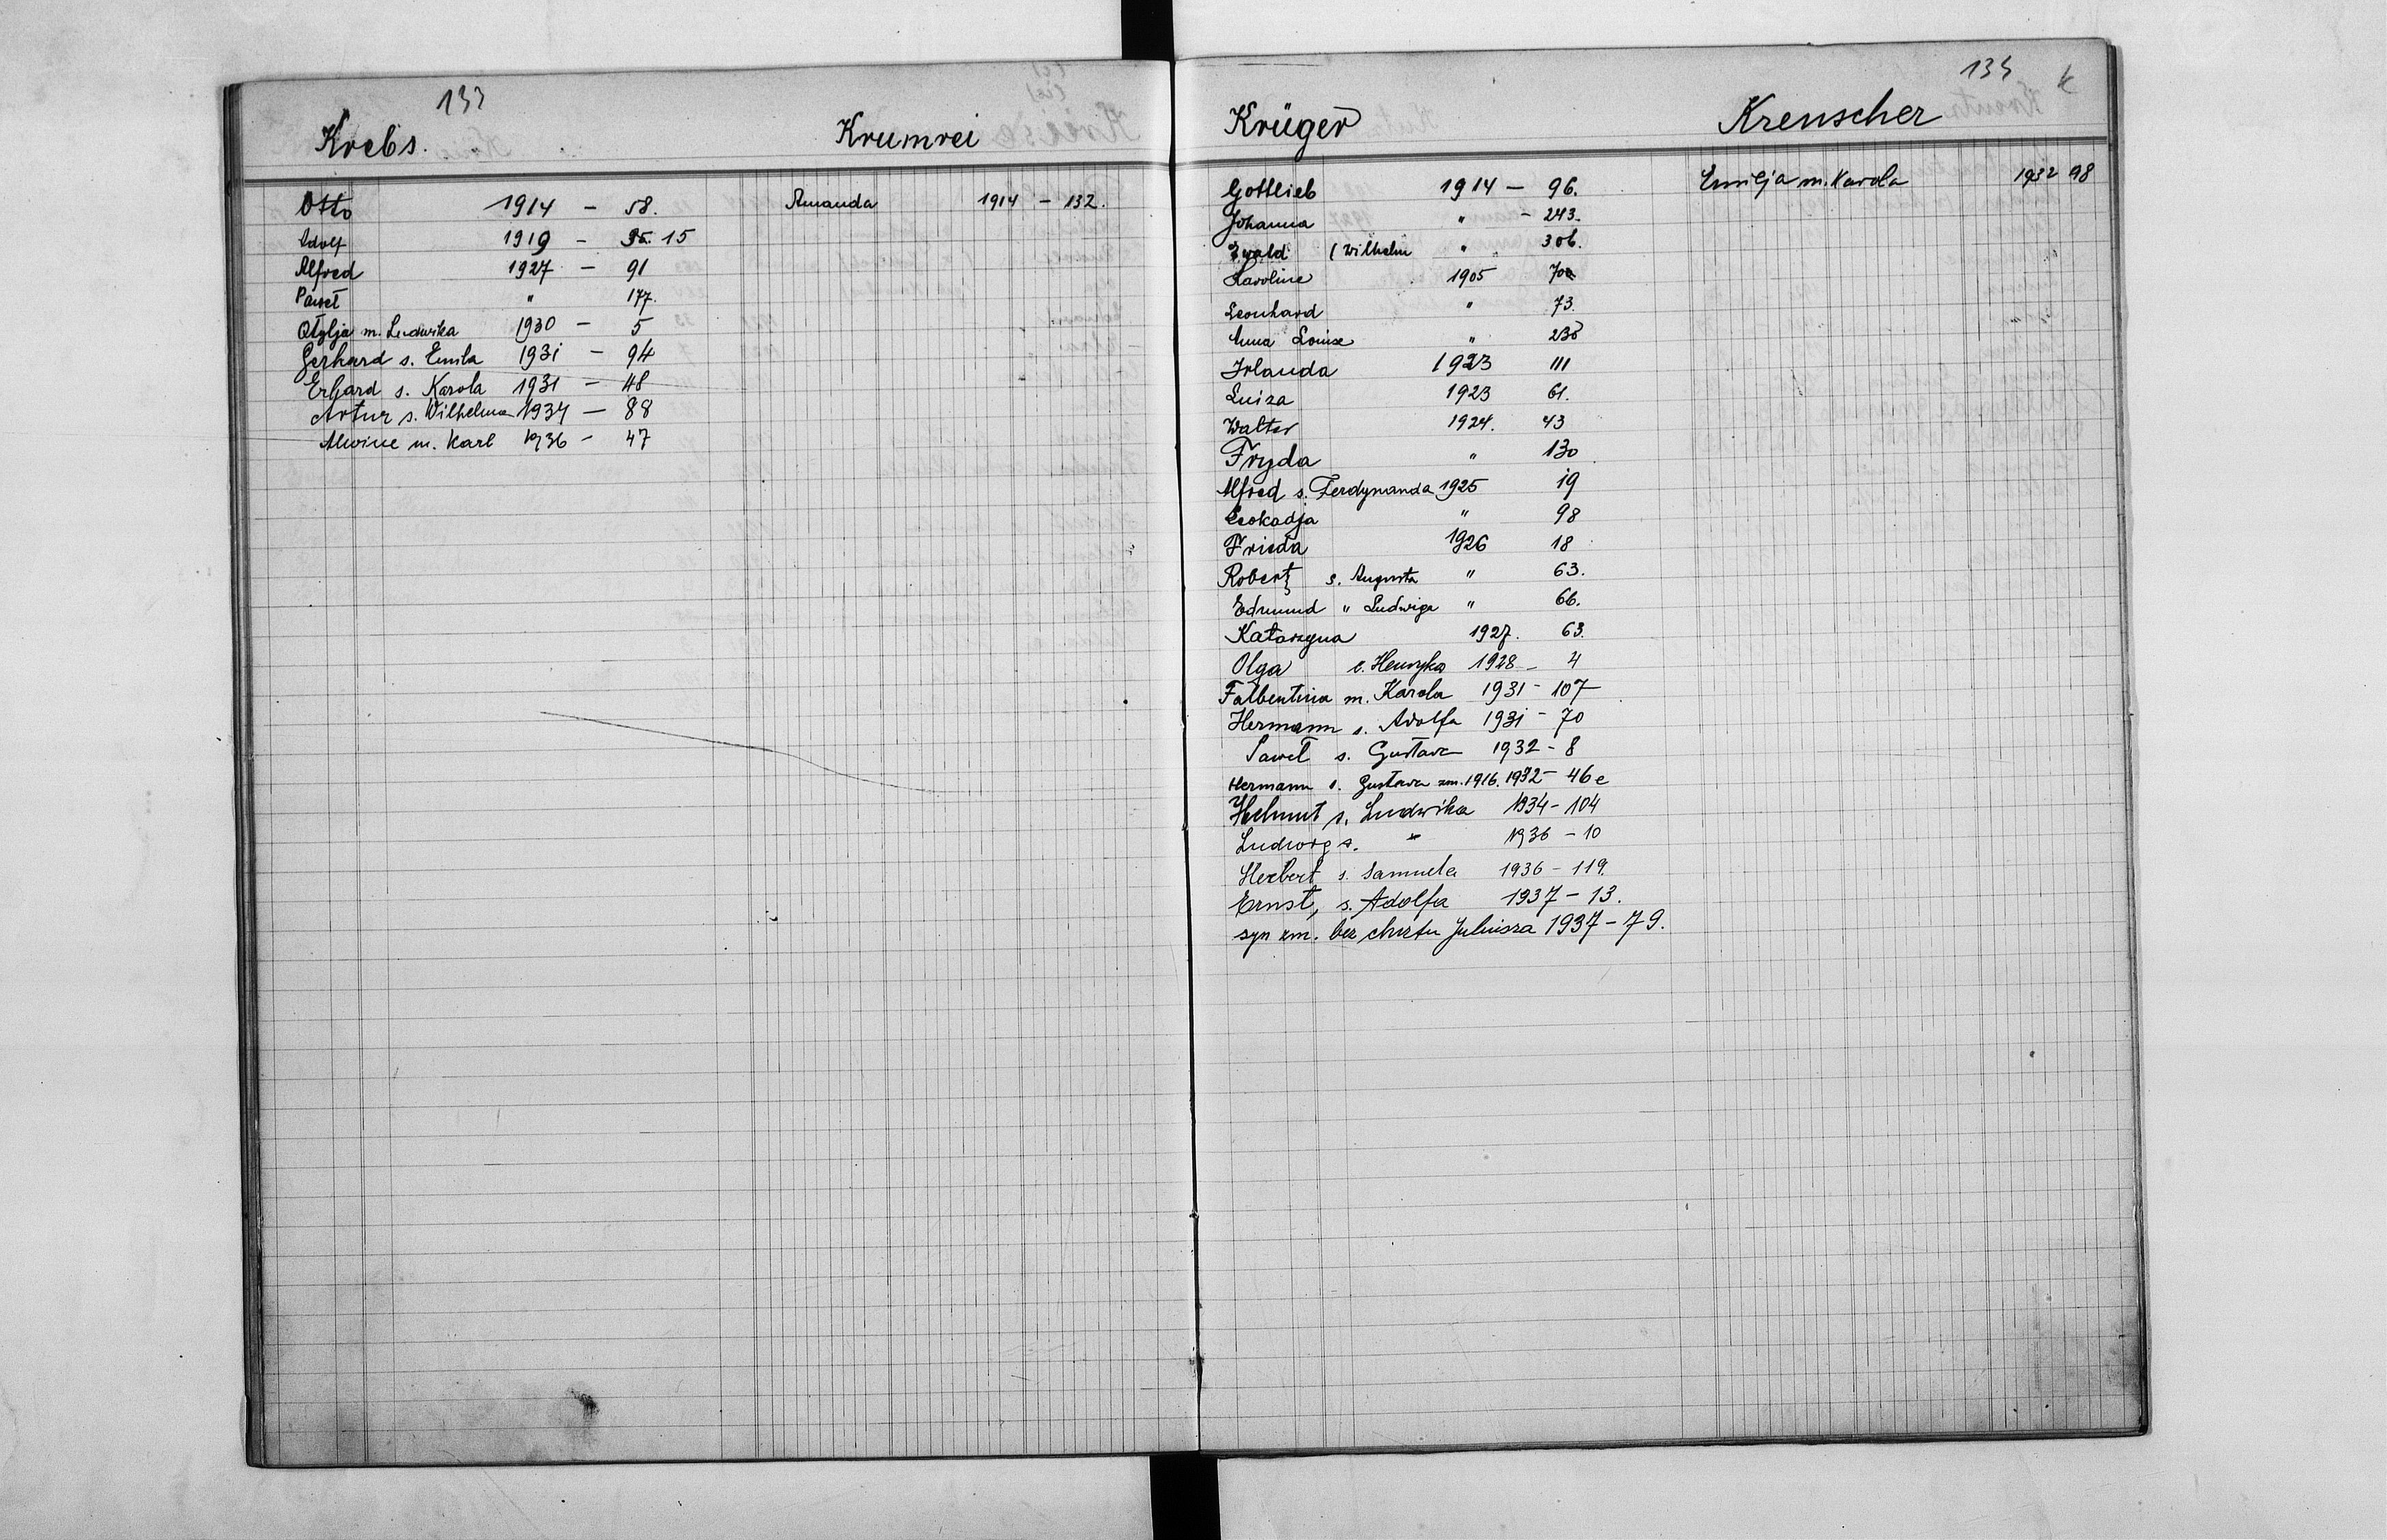 133
Krebs.
Otto 1914 - 58.
Adolf 1919 - 15
Alfred 1927 - 91
Paweł " 177.
Otylja m. Ludwika 1930 - 5
Gerhard s. Emila 1931 - 94
Erhard s. Karola 1931 - 48
Artur s. Wilhelma 1934 - 88
Alwine m. Karl 1936 - 47
Krumrei
Amanda 1914 - 132.
Krüger
Gottlieb 1914 - 96.
Johanna " - 243.
Ewald (Wilhelm " 306.
Karoline 1905 70a
Leonhard " 73.
Anna Louise "
Irlanda 1923 111
Luiza 1923 61.
Walter 1924. 43
Fryda " 130
Alfred s. Ferdynanda 1925 19
Leokadja " 98
Frieda 1926 18
Robert s. Augusta " 63.
Edmund " Ludwiga " 66.
Katarzyna 1927. 63.
Olga c. Henryka 1928 - 4
Falbentina m. Karola 1931 - 107
Hermann s. Adolfa 1931 - 70
Paweł s. Gustawa 1932 - 8
Hermann s. Gustawa zm. 1916. 1932 - 46e
Helmut s. Ludwika 1934 - 104
Ludwig s. " 1936 - 10
Herbert s. Samuela 1936 - 119.
Ernst, s. Adolfa 1937 - 13.
syn zm. bez chrztu Juliusza 1937 - 79.
K
Krenscher
Emilja m. Karola 1932 98